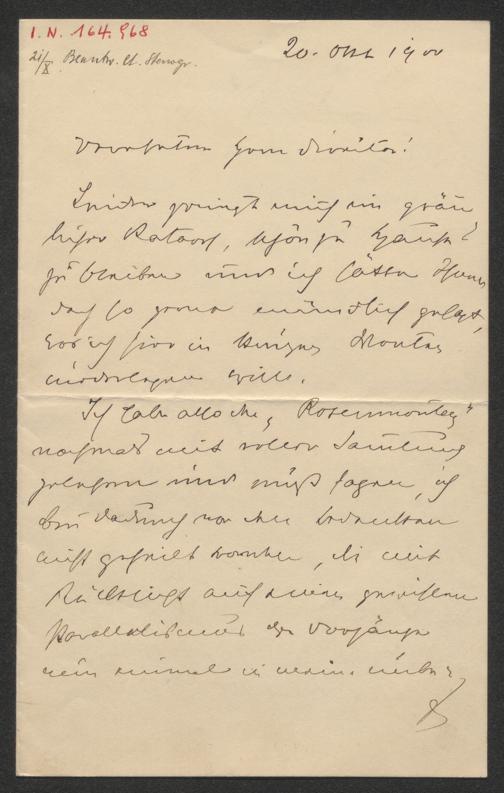 I.N. 164.968
21/X Beantw. lt. Stenogr.
20. Okt 1900
Verehrter Herr Direktor!
Leider zwingt mich ein gräu
licher Katarrh, schön zu Hause
zu bleiben und ich hätte Ihnen
doch so gerne mündlich gesagt,
was ich hier in kurzen Worten
niederlegen will.
Ich habe also den „Rosenmontag“
nochmals mit voller Samlung
gelesen und muß sagen, ich
bin dadurch von den Bedenken
nicht geheilt worden, die mit
Rücksicht auf einen gewissen
Parallelismus der Vorgänge
nun einmal in